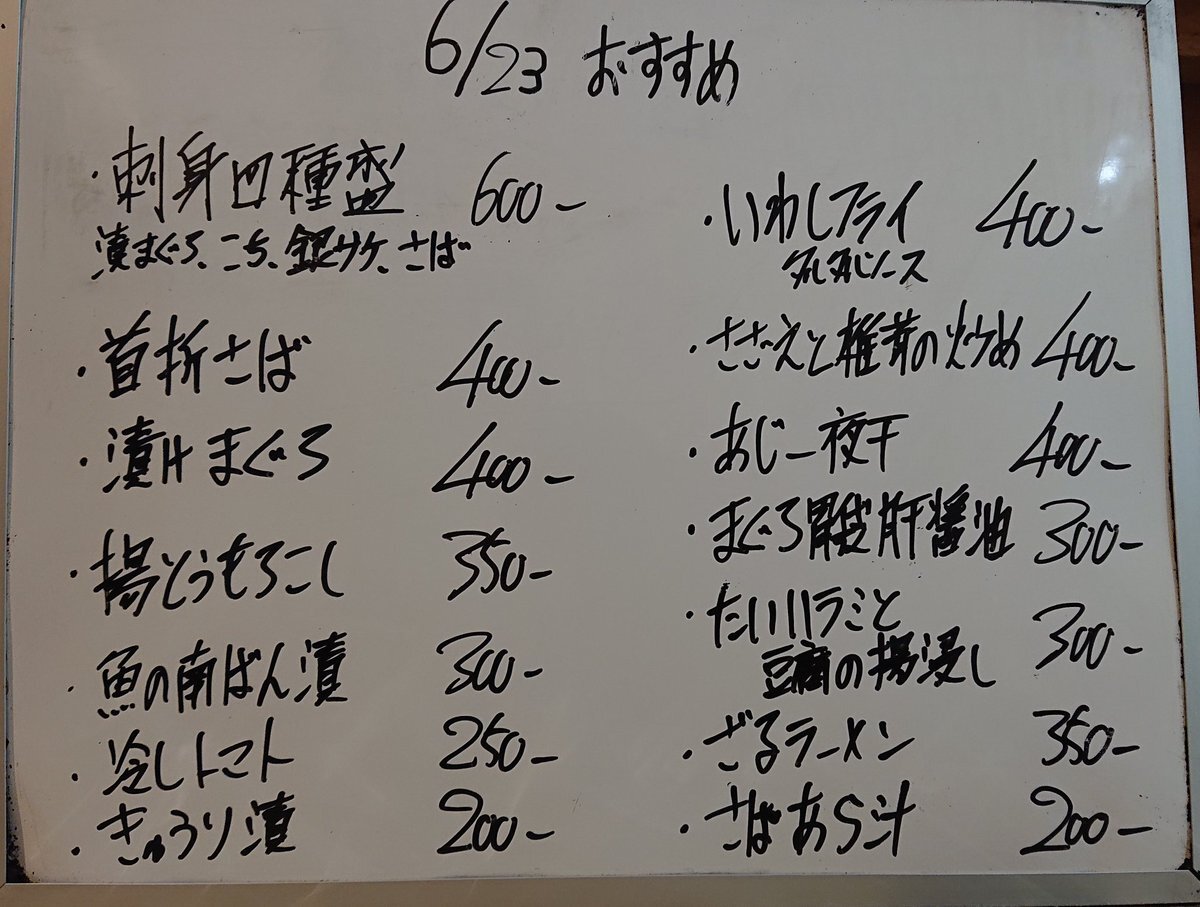 6/23 おすすめ
・刺身四種盛 600-
漬まぐろ、こち、銀サケ、さば
・首折さば 400-
・漬けまぐろ 400-
・揚とうもろこし 350-
・魚の南ばん漬 300-
・冷しトマト 250-
・きゅうり漬 200-
・いわしフライ 400-
ソース
・さざえと椎茸の炒め 400-
・あじ一夜干 400-
・まぐろ胃皮肝醤油 300-
・たいハラミと
豆腐の揚浸し 300-
・ざるラーメン 350-
・さばあら汁 200-